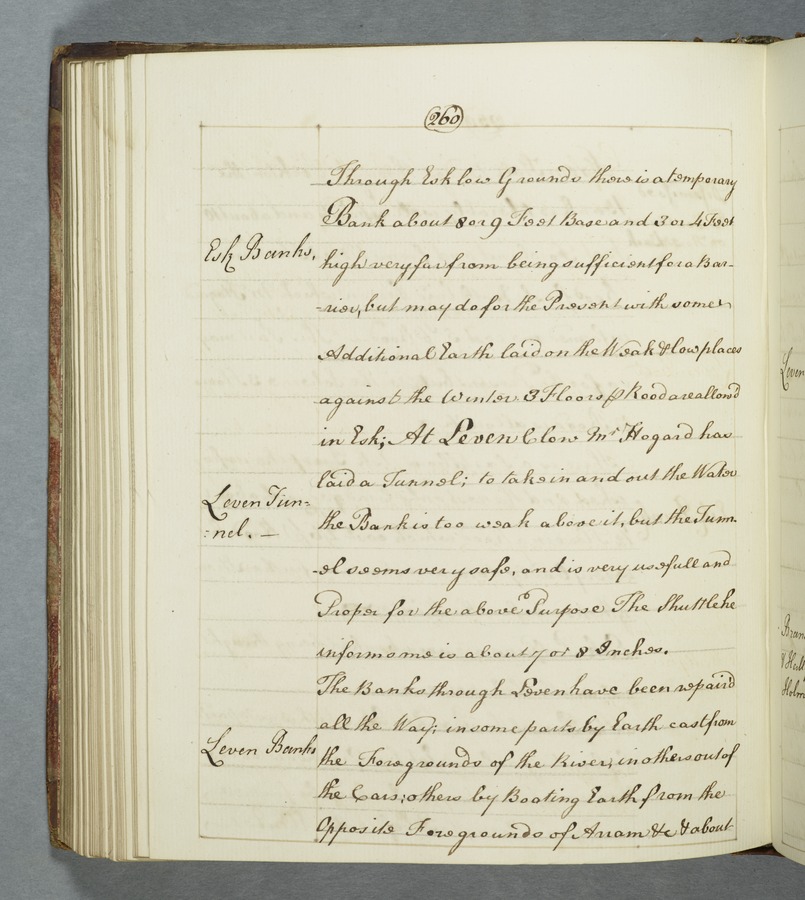 260
Through Esk low Grounds there is a temporary
Bank about 8 or 9 Feet Base and 3 or 4 Feet
Esk Banks,
high very far from being sufficient for a Bar-
-rier, but may do for the Present with some
Additional Earth laid on the Weak & low places
against the Winter 3 Floors ⅌ Rood are allow'd
in Esk; At Leven Clow Mr Hogard has
laid a Tunnel; to take in and out the Water
Leven Tun=
=nel. —
the Bank is too weak above it, but the Tunn
-el seems very safe, and is very usefull and
Proper for the above Purpose The Shuttle he
informs me is about 7 or 8 Inches.
The Banks through Leven have been repair'd
all the Way; in some parts by Earth cast from
Leven Banks
the Foregrounds of the River; in others out of
the Cars; others by Boating Earth from the
Opposite Foregrounds of Arram &c & about
Leven
Holm